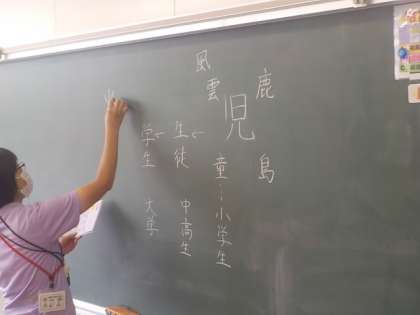 鹿児島
風雲児
児童…小学生
生徒 中高生
学生 大学